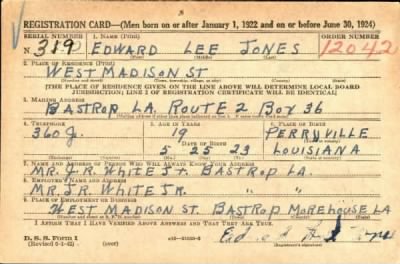 REGISTRATION CARD—(Men born on or after January 1, 1922 and on or before June 30, 1924)
SERIAL NUMBER 1. NAME (Print) ORDER NUMBER
N 319 EDWARD LEE JONES 12042
(First) (Middle) (Last)
2. PLACE OF RESIDENCE (Print)
WEST MADISON ST
[THE PLACE OF RESIDENCE GIVEN ON THE LINE ABOVE WILL DETERMINE LOCAL BOARD
JURISDICTION; LINE 2 OF REGISTRATION CERTIFICATE WILL BE IDENTICAL]
3. MAILING ADDRESS
BASTROP LA. ROUTE 2 BOX 36
4. TELEPHONE 5. AGE IN YEARS 6. PLACE OF BIRTH
360 J. 19 PERRYVILLE
DATE OF BIRTH
5 25 23 LOUISIANA
7. NAME AND ADDRESS OF PERSON WHO WILL ALWAYS KNOW YOUR ADDRESS
MR. J.R. WHITE ST. BASTROP LA.
8. EMPLOYER'S NAME AND ADDRESS
MR. J.R. WHITE JR. " "
9. PLACE OF EMPLOYMENT OR BUSINESS
WEST MADISON ST. BASTROP MOREHOUSE LA
I AFFIRM THAT I HAVE VERIFIED ABOVE ANSWERS AND THAT THEY ARE TRUE.
D. S. S. FORM 1